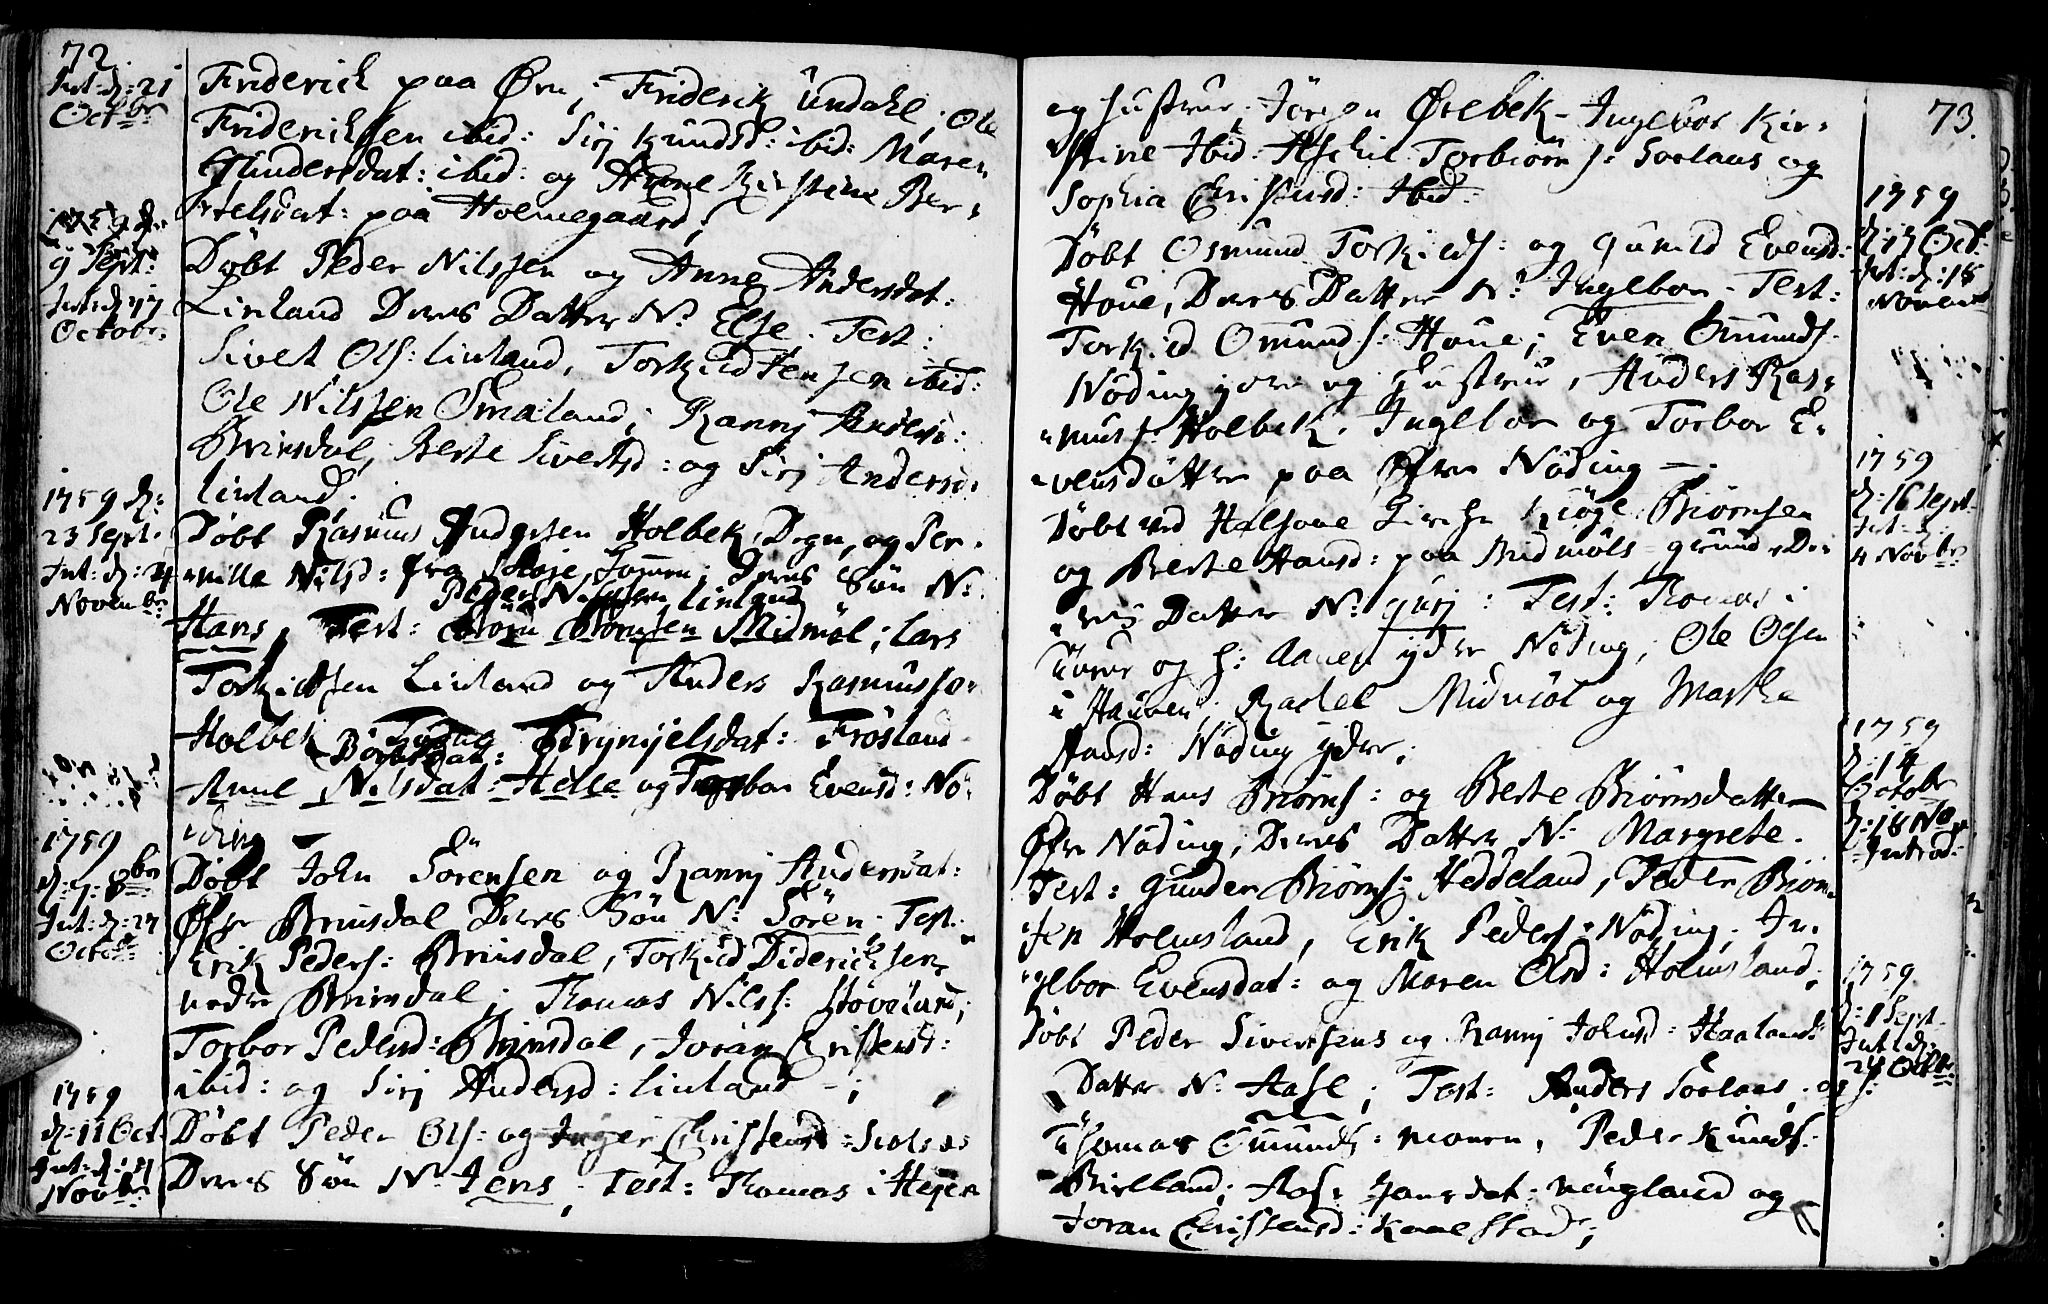 72.
Int: d: 21
Octbr
Friderich paa Øru; Friderik Undahl; Ole
Friderichsen ibid: Sirj Knudsd: ibid: Maren
Gundersdat: ibid: og Anne Kirstine Ber-
telsdat: paa Holmegaard;
1759 d:
9 Sept:
Int: d: 17
Octobr
Döbt Peder Nilssen og Anne Andersdat:
Linland Deres Datter N: Else. Test:
Sivert Ols: Linland, Torkild Jensen ibid:
Ole Nilssen Smaland; Ranny Andersd:
Brinsdal, Berte Sivertsd: og Sirj Andersd:
Linland.
1759 d:
23 Sept:
Int: d: 4
Novembr
Döbt Rasmus Andersen Holbek, Degn, og Per-
nille Nilsd: fra Deres Sön N:
Peder Nilssen Linland
Hans, Test: Midmöl; Lars
Torkildsen Linland og Anders Rasmusso-
Holbek Frösland
Anne Nilsdat: Helle og Ingebor Evensd: Nö-
ding
1759
d: 7: 8br
Int: d: 27
Octobr
Döbt John Sörensen og Ranny Andersdat:
Øfre Brinsdal Deres Sön N: Sören; Test.
Erik Peders: Brinsdal, Torkild Diderichsen
nedre Brinsdal; Thomas Nilss: Stöveland;
Torbor Pedersd: Brinsdal, Joran Christensd:
ibid: og Sirj Andersd: Linland -;
1759
d: 11 Oct
Int: d: 11
Novbr
Döbt Peder Ols: og Inger Christensd:
Deres Sön N: Jens; Test: Thomas i Heien
73.
og hustrue; Jörgen Örebek - Ingebor Kir-
stine Ibid: Aschil Torbiörns: Sorlaas og
Sophia Christensd: Ibid:
1759
d: 17 Oct:
Int: d: 18
Novem
Döbt Osmund Torkilds: og Gunild Evensd:
Houe, Deres Datter N: Ingebor - Test:
Torkild Omunds: Houe; Even Omunds
Nöding ydre og Hustrue, Anders Ras-
mus: Holbek, Ingebor og Torbor E-
vensdötter paa Öfre Nöding -.
1759
d: 16 Sept
Int: d:
4 Novbr
Döbt ved Halsaae Kirche Biörnsen
og Berte Hansd: paa Midmöls-grund, De-
res Datter N: Gurj: Test: Thomas i
og h: ydre Nöding, Ole Olsen
i Hauven, Rachel Midmöl og Martha
Hansd: Nöding ydre;
1759
d: 14
Octobr
d: 18 No
Introd:
Döbt Hans Biörns: og Berte Biörnsdatter
Öfre Nöding, Deres Datter N: Margrete.
Test: Gunder Biörns: Heddeland, Peder Biörn-
sen Holmsland, Erik Peders: Nöding, In-
gebor Evensdat: og Maren Olsd: Holmsland;
1759
d: 1 Sept
Int: d:
24 Octbr
Döbt Peder Sivertsens og Ranny Johnsd: Haalands
Datter N: Aase; Test: Anders Sorlaas, og h:
Thomas Omunds: Monen, Peder Knuds:
Birkland; Aase Hansdat: og
Joran Christensd: Kaalstad;